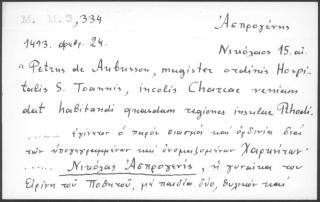 M. M. 3, 334
Ἀσπρογένης
1493. φεβρ. 24.
Νικόλαος 15. αἰ.
"Petrus de Aubusson, magister ordinis Hospi-
talis S. Joannis, incolis Charcae veniam
dat habitandi quasdam regiones insulae Rhodi.
....... ἐγίνετον ὁ παρὸν σιασμὸς καὶ ὀρδινία διαὶ
τῶν ὑπογεγραμμένων καὶ ὀνομαζομένων Χαρκητῶν.
....... Νικόλας Ἀσπρογενής, ἡ γυναίκα του
Εἰρήνη τοῦ Ποθητοῦ, μὲ παιδία δύο, θυλικὸν καὶ